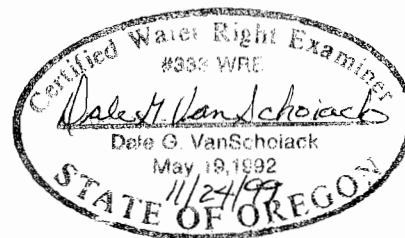 Certified Water Right Examiner
#333 WRE
Dale G. VanSchoiack
Dale G. VanSchoiack
May 19,1992
11/24/99
STATE OF OREGON